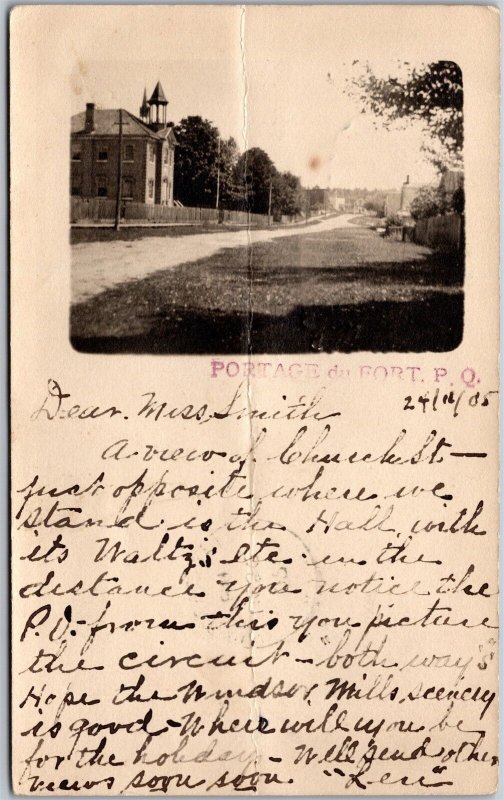 PORTAGE du FORT. P. Q.
Dear Miss Smith 24/11/05
A view of Church St -
just opposite where we
stand is the Hall with
its Waltz's etc. in the
distance you notice the
P.O. - from this you picture
the circuit - "both way's"
Hope the Windsor Mills scenery
is good - Where will you be
for the holiday - Will send other
views soon soon. "Len"